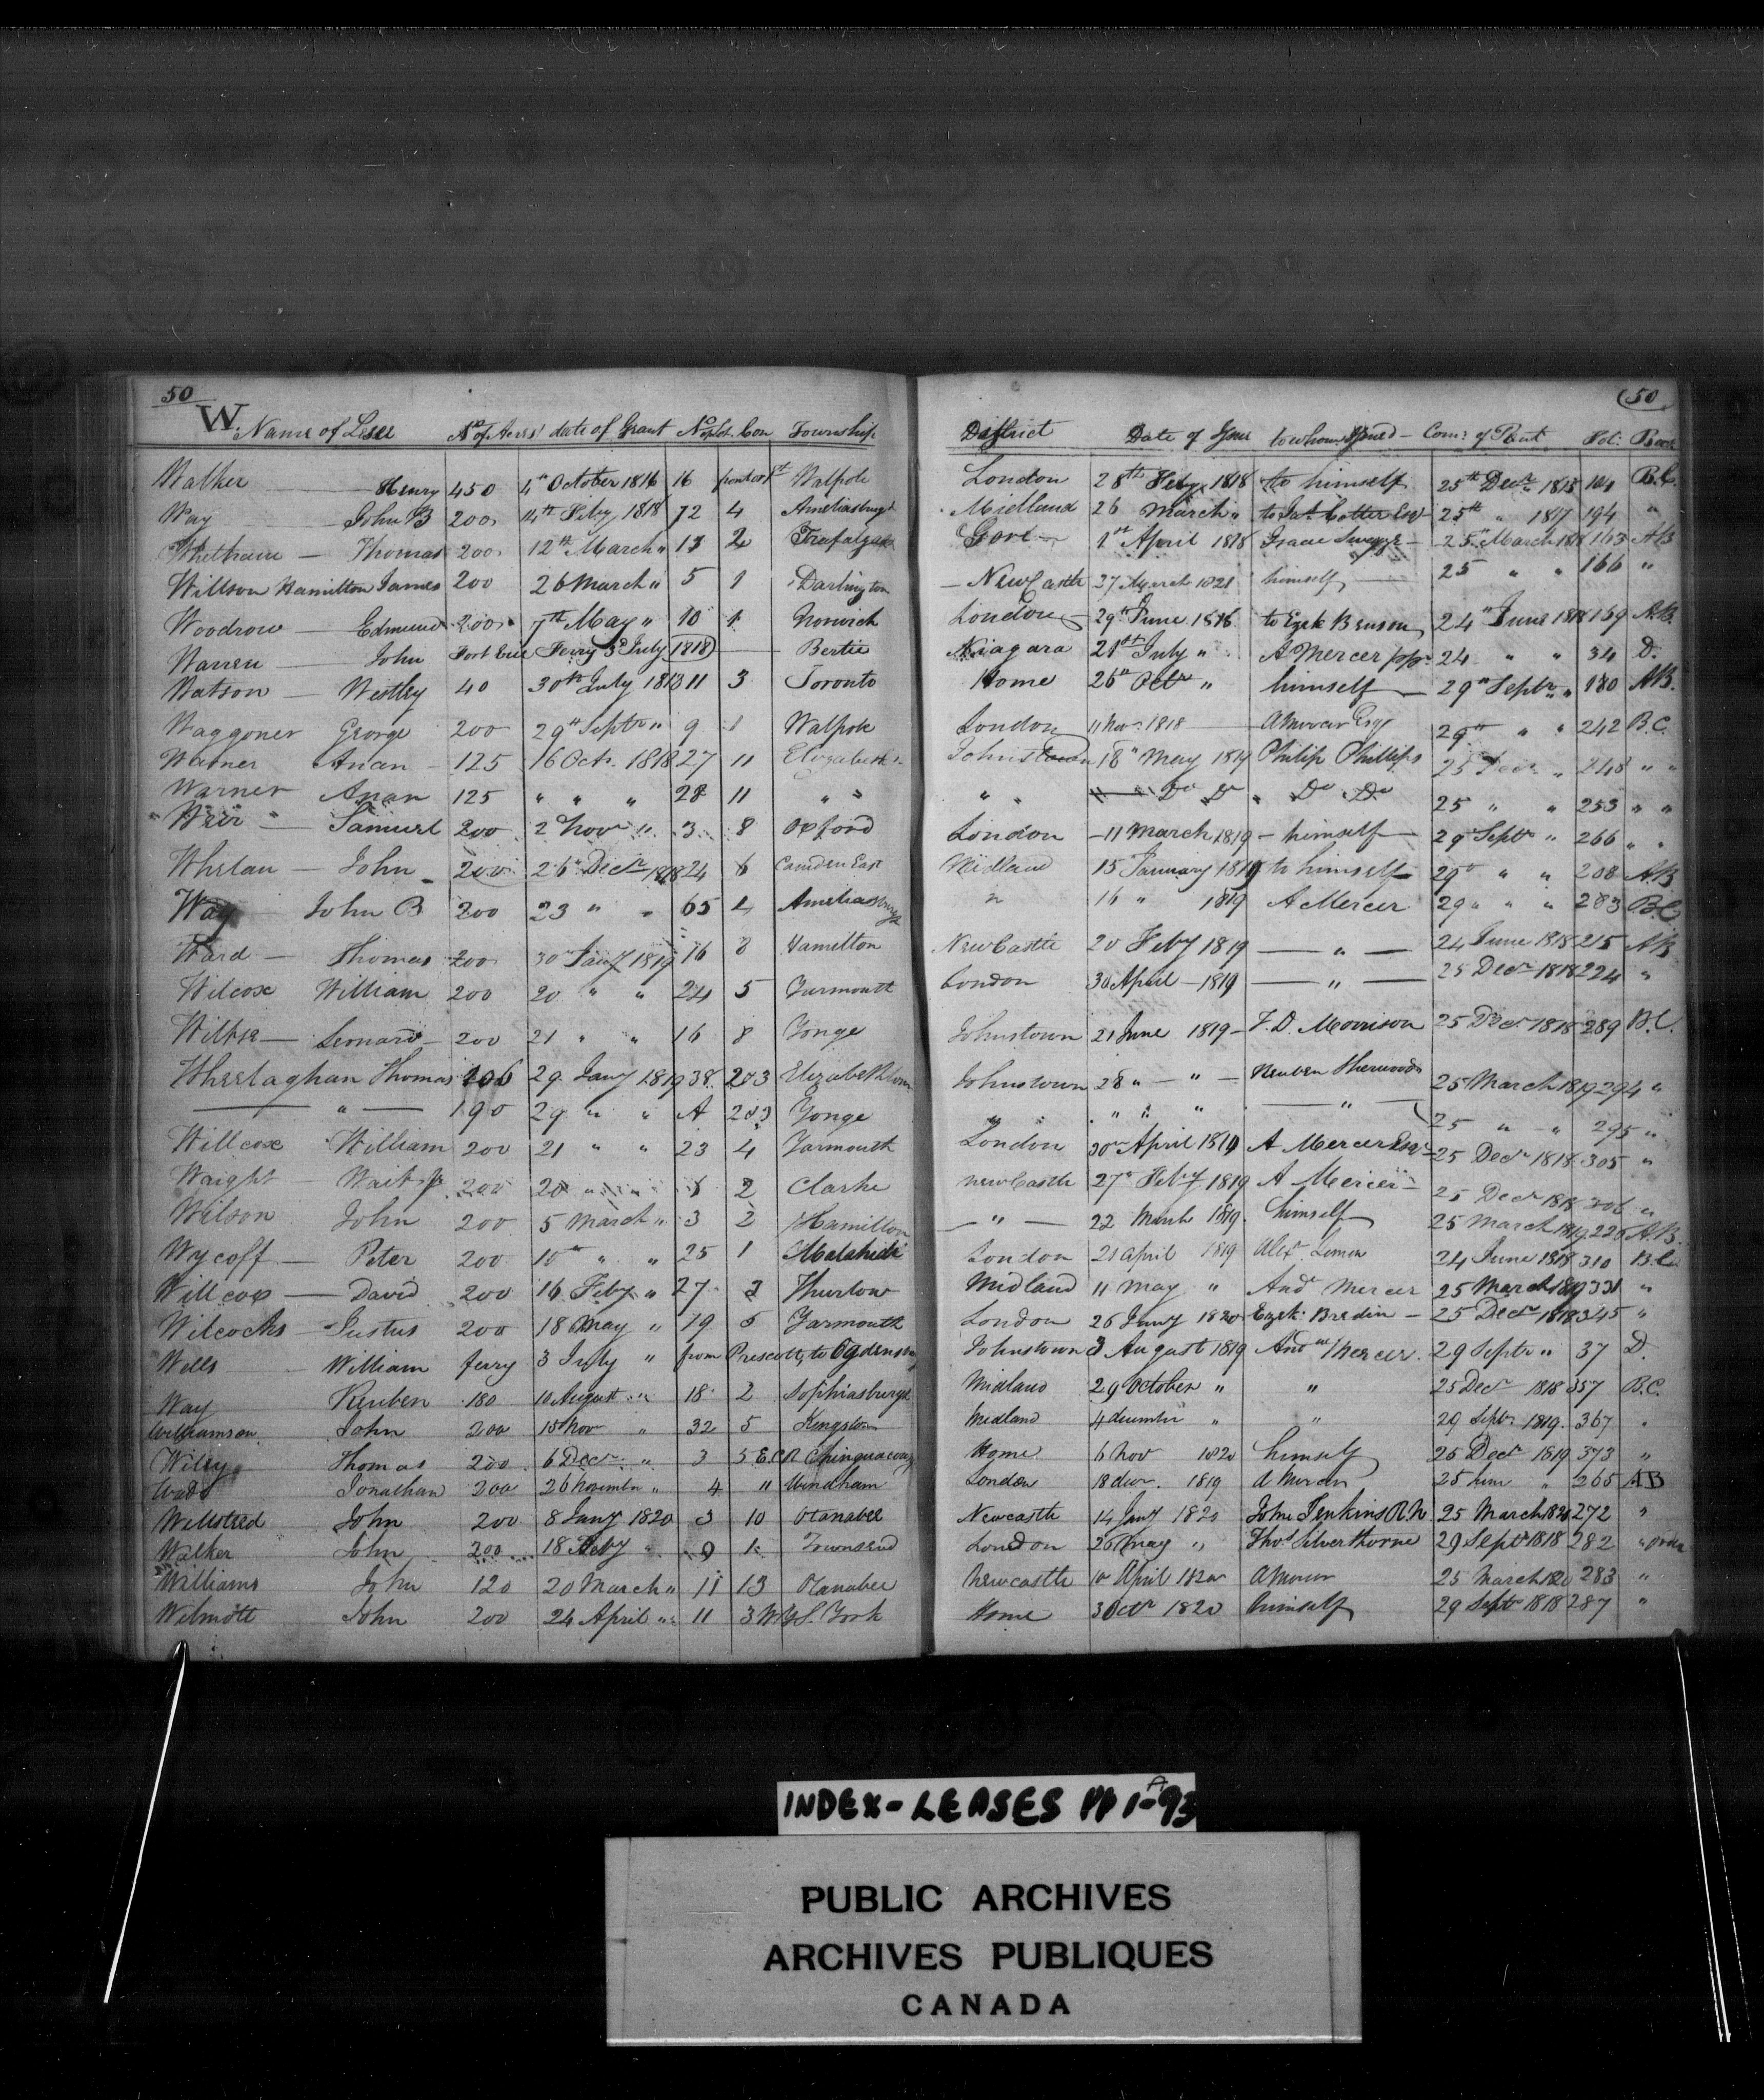 50
W. Name of Lesee No of Acres date of Grant No of Lot Con Township
Walker Henry 450 4th October 1816 16 front con 1st Walpole
Way John B 200 14th Feby 1818 72 4 Ameliasburgh
Thomas 200 12th March " 13 2 Trafalgar
Willson Hamilton James 200 26 March " 5 1 Darlington
Woodrow Edmund 200 7th May " 10 1 Norwich
Warren John Fort Erie Ferry 3d July 1818 Bertie
Watson Westley 40 30th July 1818 11 3 Toronto
Waggoner George 200 29th Septr " 9 1 Walpole
Warner Anan 125 16 Octr. 1818 27 11
Warner Anan 125 " " " 28 11 " "
" Weir " Samuel 200 2 Novr " 3 8 Oxford
Whelan John 200 26th Decr 1818 24 6 Camden East
Way John B 200 23 " " 65 4 Ameliasburgh
Ward Thomas 200 30th Jany 1819 16 8 Hamilton
Wilcox William 200 20 " " 24 5 Yarmouth
Leonard 200 21 " " 16 8 Yonge
Thomas 106 29 Jany 1819 38 2&3 Elizabethtown
" 190 29 " " A 2&3 Yonge
Willcox William 200 21 " " 23 4 Yarmouth
Waight Wait Jr 200 20 " " 2 Clarke
Wilson John 200 5 March " 3 2 Hamilton
Wycoff Peter 200 10th " " 25 1 Malahide
Willcox David 200 16 Feby " 27 3 Thurlow
Wilcocks Justus 200 18 May " 19 5 Yarmouth
Wells William ferry 3 July " from Prescott, to Ogdensburg
Way Reuben 180 10 August " 18 2 Sophiasburgh
Williamson John 200 15 Nov " 32 5 Kingston
Wiley Thomas 200 6 Decr " 3 5 E.C.R Chinguacousy
Wade Jonathan 200 26 November " 4 " Windham
Wellsteed John 200 8 Jany 1820 3 10 Otanabee
Walker John 200 18 Feby " 9 1 Townsend
Williams John 120 20 March " 11 13 Otanabee
Wilmott John 200 24 April " 11 3 W Y S. York
50
District Date of Issue to whom Issued Com: of Rent Fol: Book
London 28th Feby 1818 to himself 25th Decr 1815 104 B.C.
Midland 26 March " to Jas Cotter Esqr 25th " 1817 194 "
Gore 1st April 1818 Isaac Swayze 25th March 1818 163 AB
NewCastle 27 March 1821 himself 25 " " 166 "
London 29th June 1818 to Ezek Benson 24th June 1818 169 AB.
Niagara 21st July " A Mercer 24 " " 34 D.
Home 26th Octr " himself 29th Septr " 180 AB.
London 11 Novr 1818 A Mercer Esqr 29th " " 242 B.C.
Johnstown 18th May 1819 Philip Phillips 25 Decr " 248 " "
" " Do Do " Do Do 25 " " 253 " "
London 11 March 1819 himself 29 Septr " 266 " "
Midland 15 January 1819 to himself 29th " " 208 AB
" 16 " 1819 A Mercer 29 " " " 283 B.C
NewCastle 20 Feby 1819 " 24 June 1818 215 AB
London 30 April 1819 " 25 Decr 1818 224 "
Johnstown 21 June 1819 Morrison 25 Decr 1818 289 B.C.
Johnstown 28 " " Reuben Sherwood 25 March 1819 294 "
" " " " " " 25 " " 295 "
London 30th April 1819 A Mercer Esqr 25 Decr 1818 305 "
NewCastle 27th Feby 1819 A Mercer 25 Decr 1818 306 "
" 22 March 1819 himself 25 March 1819 226 AB.
London 21 April 1819 Alexr 24 June 1818 310 B.C
Midland 11 May " Andw Mercer 25 March 1819 331 "
London 26 Jany 1820 Ezek. Bredin 25 Decr 1818 345 "
Johnstown 3 August 1819 Andw Mercer. 29 Septr " 37 D.
Midland 29 October " " 25 Decr 1818 357 B.C.
Midland 4 december " " 29 Septr 1819. 367 "
Home 6 Nov 1820 himself 25 Decr 1819 373 "
London 18 decr. 1819 A Mercer 25 " 265 AB
Newcastle 14 Jany 1820 John Jenkins R.N. 25 March 1820 272 "
London 26 May " Thos Silverthorne 29 Septr 1818 282 "
Newcastle 10 April 1820 A Mercer 25 March 1820 283 "
Home 3 Octr 1820 himself 29 Septr 1818 287 "
INDEX-LEASES PP 1-93A
PUBLIC ARCHIVES
ARCHIVES PUBLIQUES
CANADA